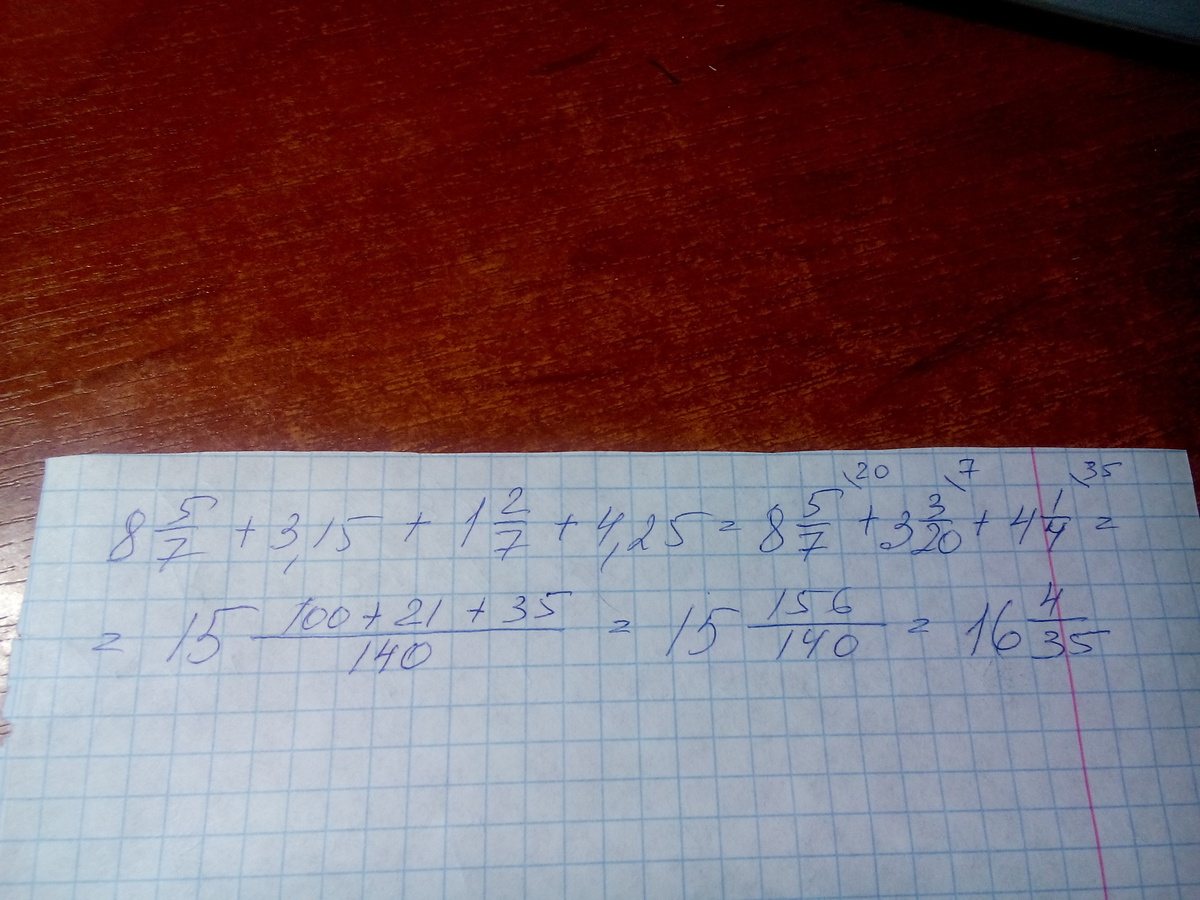 8 5/7 + 3,15 + 1 2/7 + 4,25 = 8 5/7 \20 + 3 3/20 \7 + 4 1/4 \35 =
= 15 (100 + 21 + 35)/140 = 15 156/140 = 16 4/35